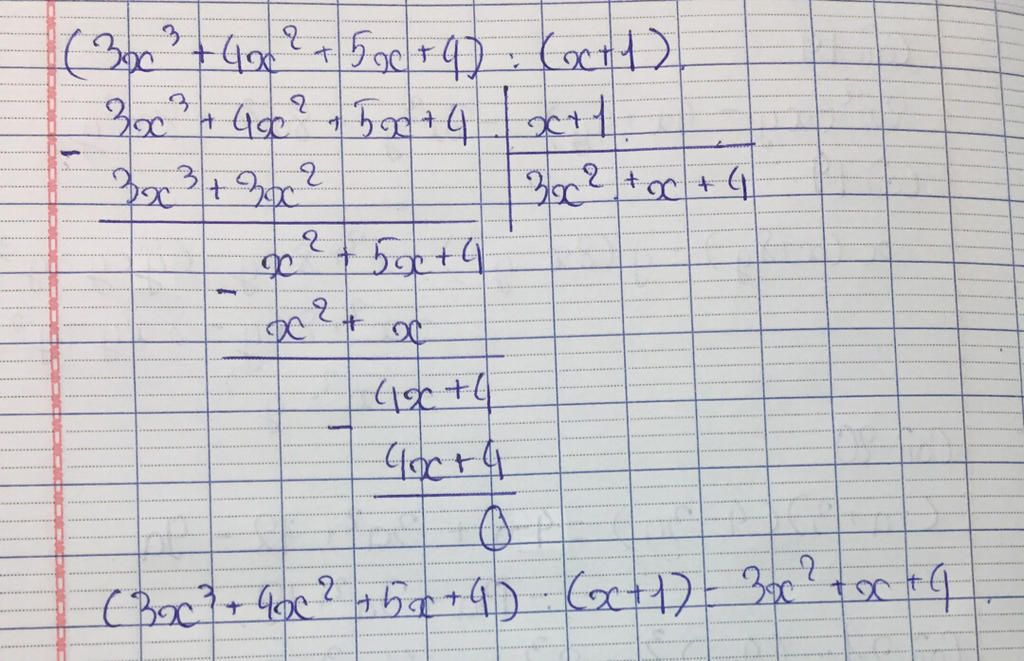 (3x³ + 4x² + 5x + 4) : (x+1).
3x³ + 4x² + 5x + 4 | x+1
- 3x³ + 3x² | 3x² + x + 4
x² + 5x + 4
- x² + x
4x + 4
- 4x + 4
0
(3x³ + 4x² + 5x + 4) : (x+1) = 3x² + x + 4